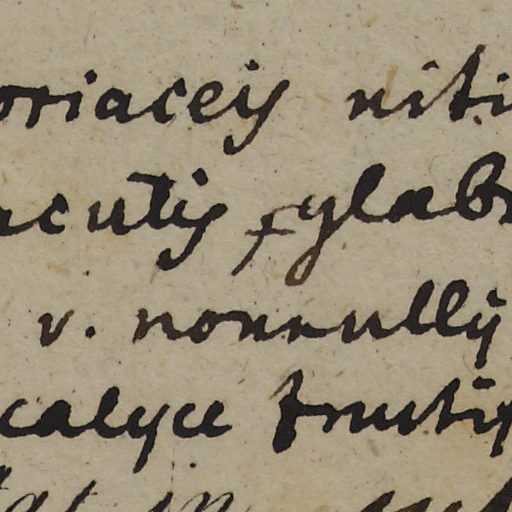 oriaceis niti
acutis glab
v. nonnullis
calyce fructis